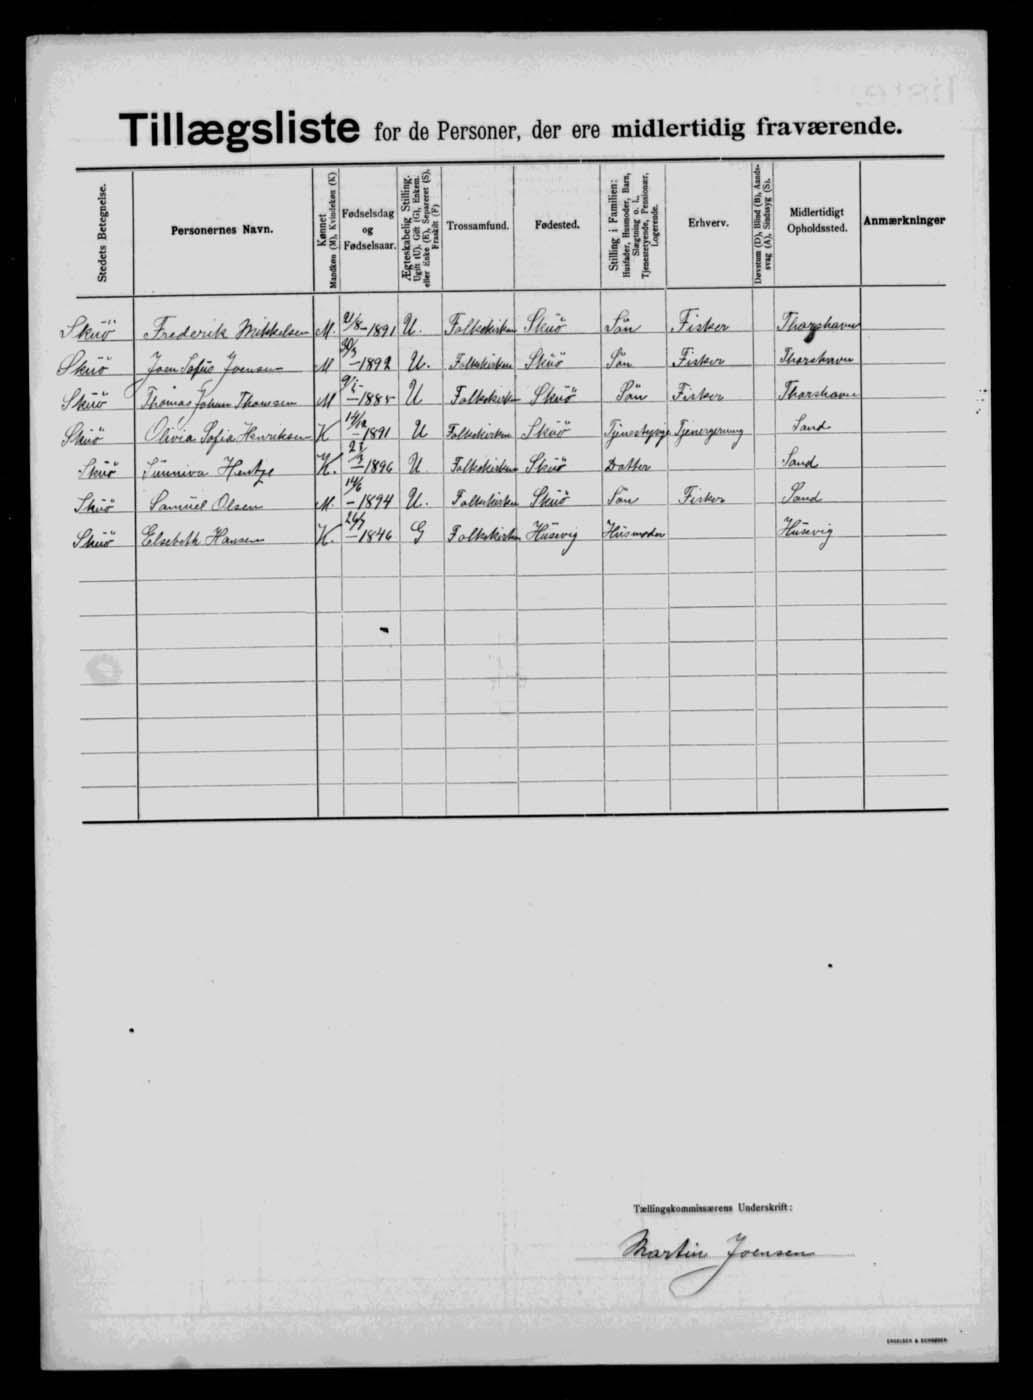 Tillægsliste for de Personer, der ere midlertidig fraværende.
Stedets Betegnelse. Personernes Navn. Kønnet Mandkøn (M), Kvindekøn (K) Fødselsdag og Fødselsaar. Ægteskabelig Stilling. Ugift (U), Gift (G), Enkem. eller Enke (E), Separeret (S), Fraskilt (F) Trossamfund. Fødested. Stilling i Familien: Husfader, Husmoder, Barn, Slægtning o. l., Tjenestetyende, Pensionær, Logerende. Erhverv. Døvstum (D), Blind (B), Aandssvag (A), Sindssyg (S). Midlertidigt Opholdssted. Anmærkninger
Skuö Frederik Mikkelsen M. 21/8-1891 U. Folkekirken Skuö Sön Fisker Thorshavn
Skuö Joen Sofus Joensen M -1892 U. Folkekirken Skuö Sön Fisker Thorshavn
Skuö Thomas Johan Thomsen M U Folkekirken Skuö Sön Fisker Thorshavn
Skuö Olivia Sofia Henriksen K 14/12-1891 U Folkekirken Skuö Tjenergerning Sand
Skuö Sunniva Hentze K. -1896 U. Folkekirken Skuö Datter Sand
Skuö Samuel Olsen M. 14/6-1894 U. Folkekirken Skuö Sön Fisker Sand
Skuö Elsebeth Hansen K. -1846 G Folkekirken Husevig Husmoder Husevig
Tællingskommissærens Underskrift:
Martin Joensen
ENGELSEN & SCHRØDER